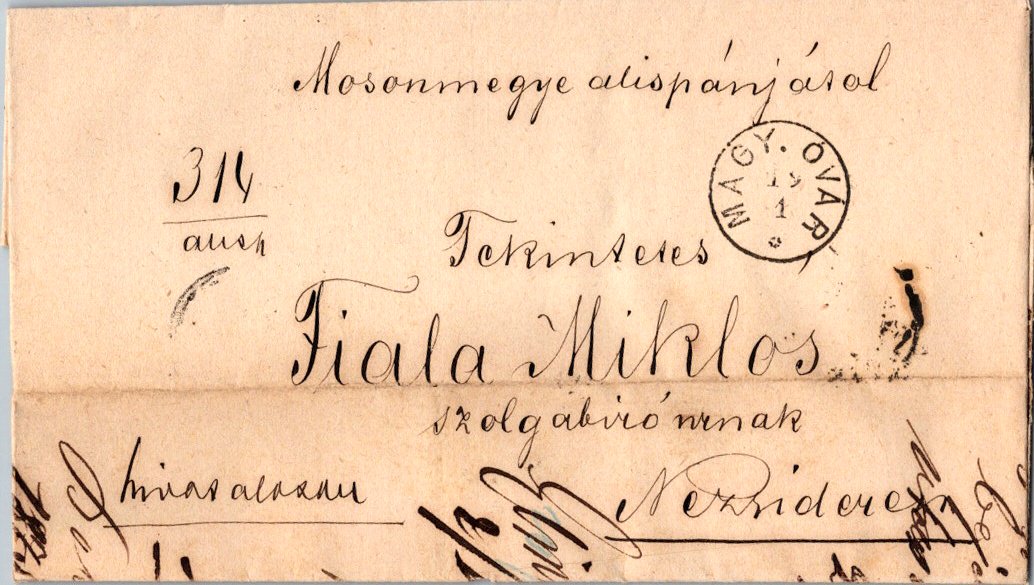 Mosonmegye alispánjátol
MAGY. ÓVÁR
19
1
314
alisp
Tekintetes
Fiala Miklos
szolgabiró urnak
hivatalosan
Nezsideren